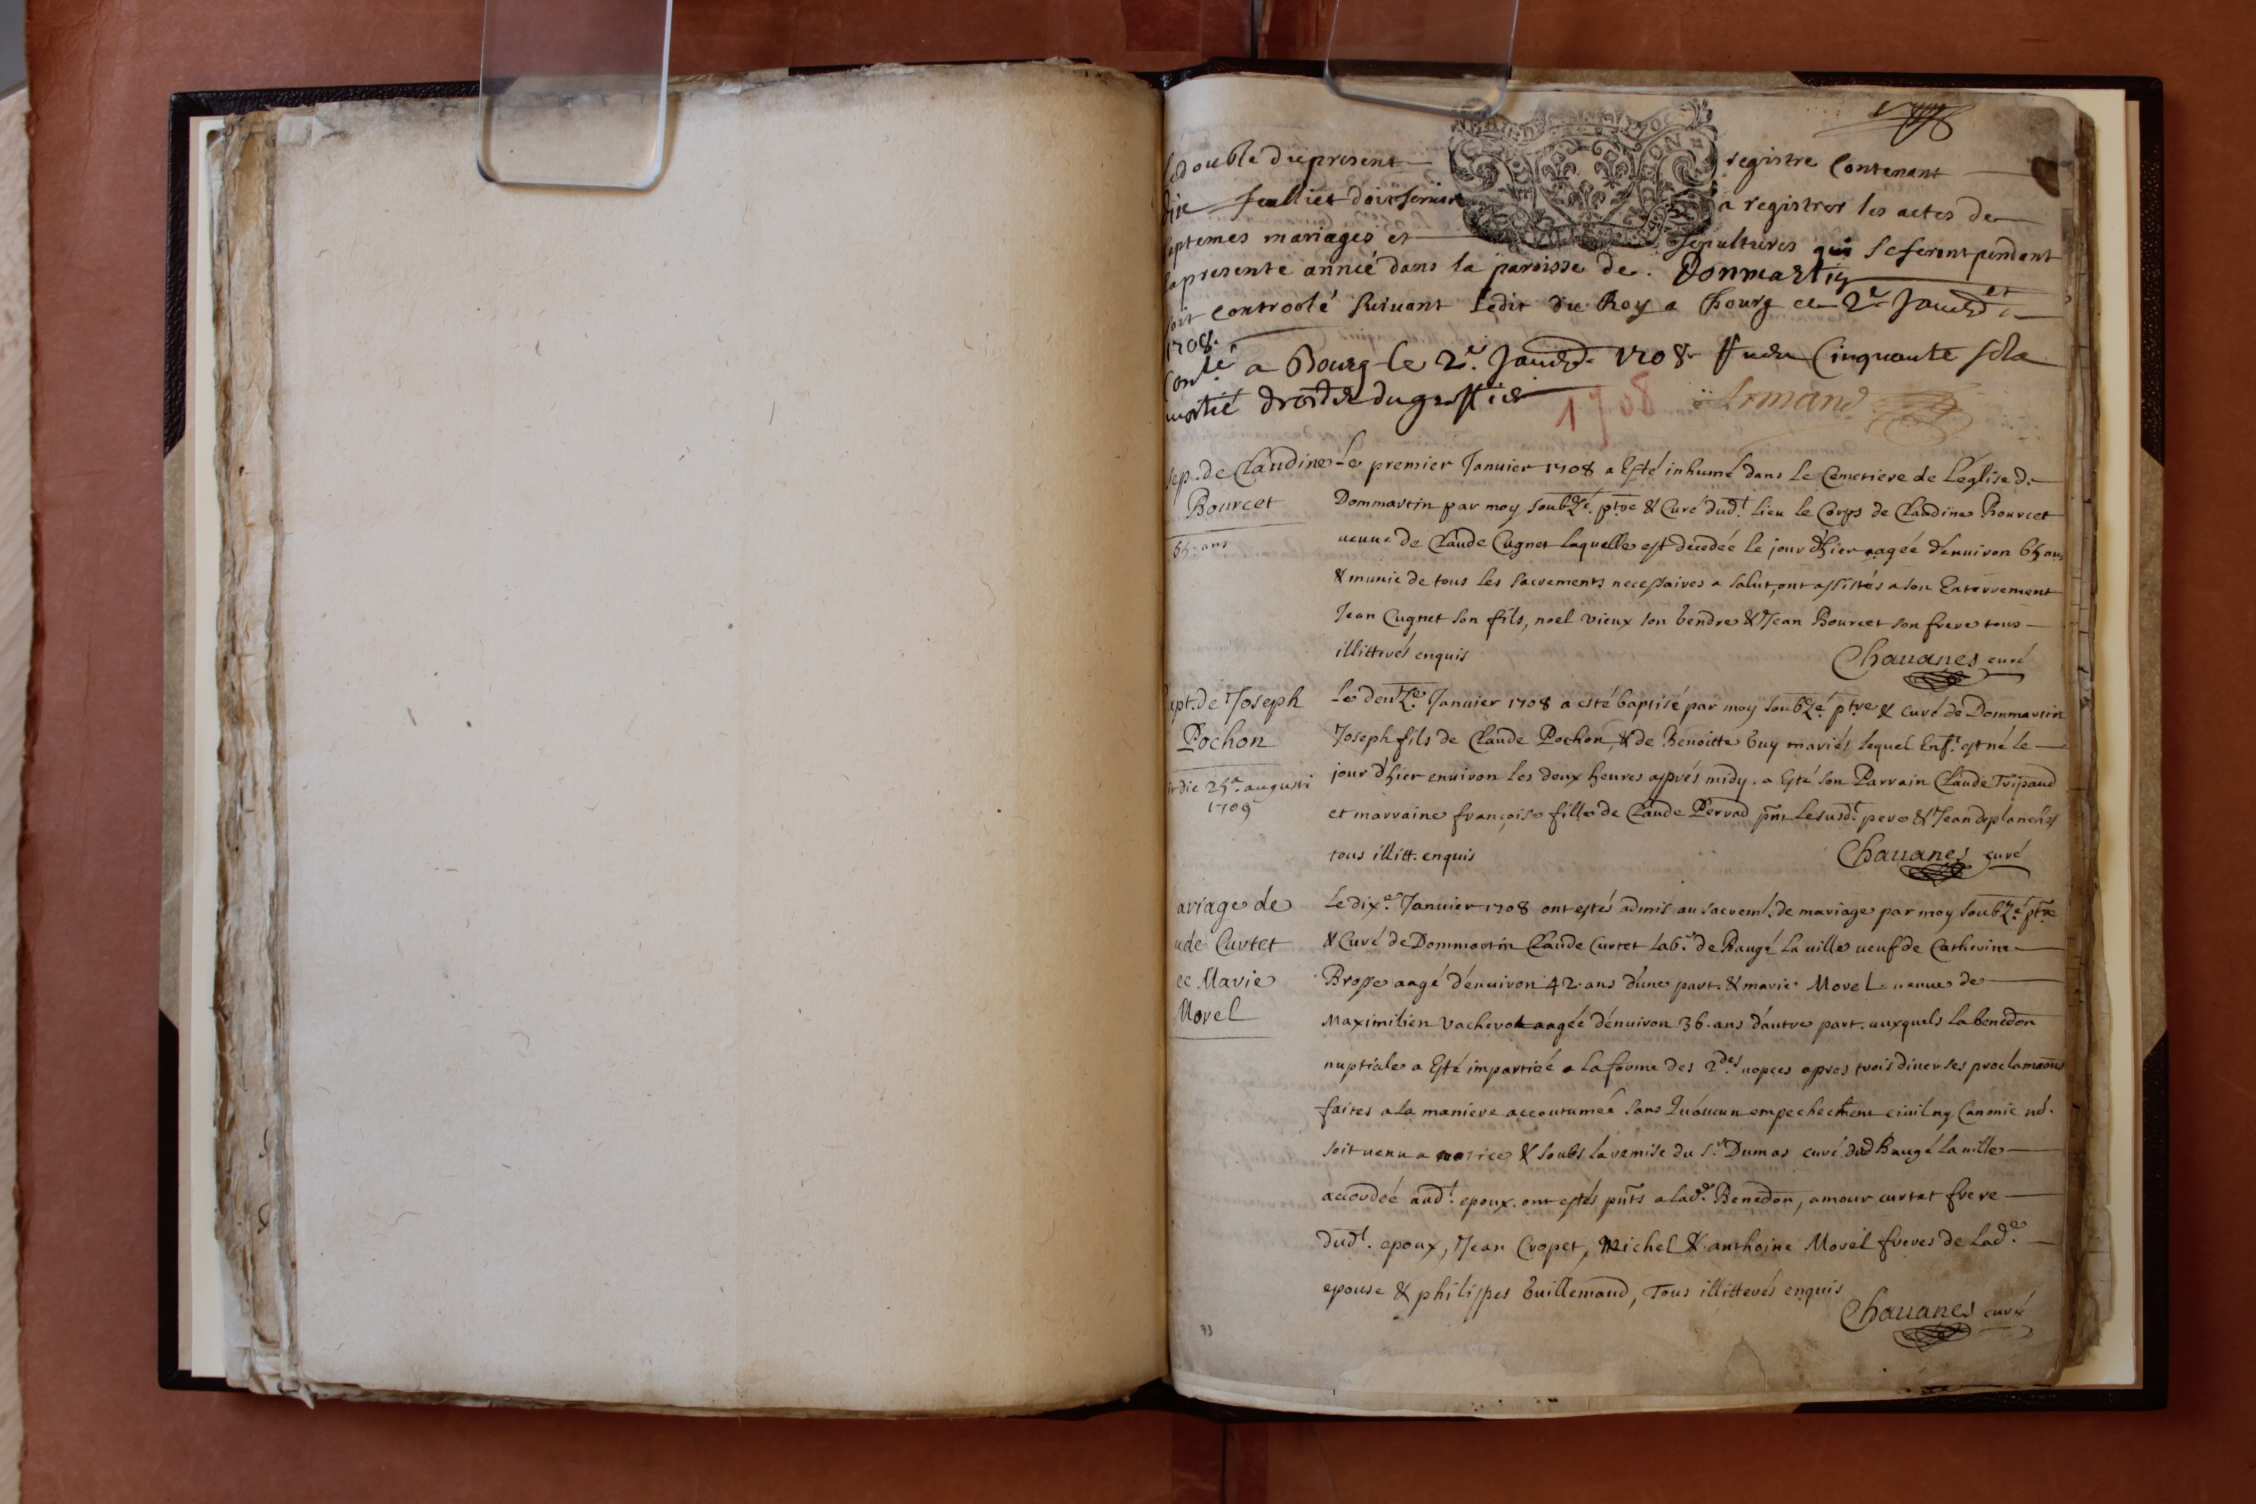 le double du present registre contenant
dix feulliet doit servir a registrer les actes de
baptemes mariages et sepultures qui se feront pendent
la presente année dans la paroisse de Donmartin
soit controolé suivant l'edit du Roy a bourg ce 2e Janvr
1708.
Conlé a Bourg le 2e. Janvr. 1708 Cinquante sols
moitié droits du greffier
1708
Armand
Sep. de Claudine
Bourcet
65 ans
Le premier Januier 1708 a Esté inhumé dans le Cemetiere de Léglise de
Dommartin par moy soubzé. ptre & Curé dudt. lieu le Corps de Claudine Bourcet
ueuue de Claude Cugnet laquelle est decedée le jour d'hier aagée d'enuiron 65 ans
& munie de tous les sacrements necessaires a salut, ont assistés a son Enterrement
Jean Cugnet son fils, noel vieux son Gendre & Jean Bourcet son frere tous
illitterés enquis
Chauanes curé
Bapt. de Joseph
Pochon
die 25a. augusti
1709
Le deuze. Januier 1708 a esté baptisé par moy soubzé ptre & curé de Dommartin
Joseph fils de Claude Pochon, & de Benoitte Guy mariés, lequel Enft. est né le
jour d'hier enuiron les deux heures aprés midy. a Esté son Parrain Claude Tripaud
et marraine françoise fille de Claude Perrad pnt. Le susdt. pere & Jean
tous illitt. enquis
Chauanes curé
Mariage de
Claude Curtet
ec Marie
Morel
Le dixe. Januier 1708 ont estés admis au sacremt. de mariage par moy soubzé ptre
& Curé de Dommartin Claude Curtet labr. de Baugé la uille ueuf de Catherine
Brosse aagé d'enuiron 42 ans d'une part. & marie Morel ueuue de
Maximilien Vacherot aagée d'enuiron 36. ans d'autre part. auxquels la benedon
nuptiale a Esté impartieé a la forme des 2des. nopces apres trois diuerses proclamaons
faites a la maniere accoutumeé sans qu'aucun empechement ciuil ny Canonic
soit uenu a notice & soubs la remise du Sr. Dumas curé dud Baugé la uille
accordeé audt. epoux. ont estés pnts a lade. Benedon, amour curtet frere
dudt. epoux, Jean Cropet, Michel & anthoine Morel freres de lade.
epouse & philippes Guillemaud, Tous illitterés enquis
Chauanes curé
73